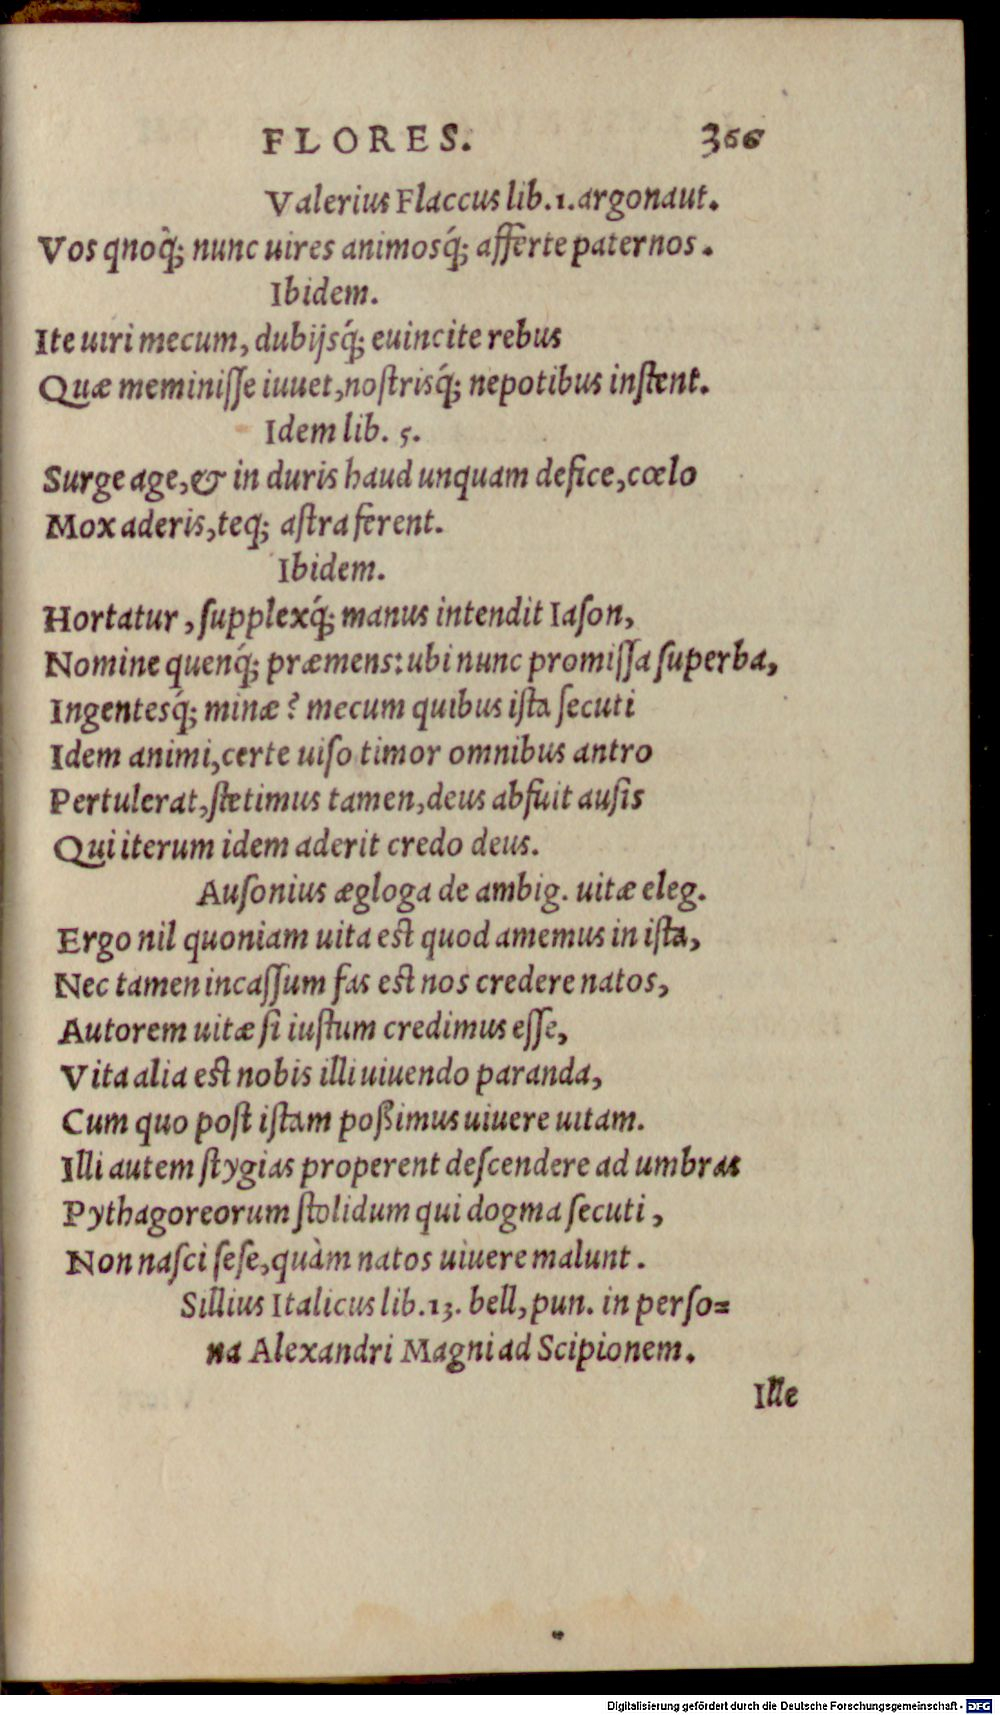 FLORES. 366
Valerius Flaccus lib.1.argonaut.
Vos qnoq́; nunc uires animosq́; afferte paternos.
Ibidem.
Ite uiri mecum, dubijsq́; euincite rebus
Quæ meminiſſe iuuet,noſtrisq́; nepotibus inſtent.
Idem lib. 5.
Surge age,& in duris haud unquam defice,cœlo
Mox aderis,teq; aſtra ferent.
Ibidem.
Hortatur,ſupplexq́; manus intendit Iaſon,
Nomine quenq́; præmens: ubi nunc promiſſa ſuperba,
Ingentesq́; minæ? mecum quibus iſta ſecuti
Idem animi,certe uiſo timor omnibus antro
Pertulerat,ſtetimus tamen,deus abfuit auſis
Qui iterum idem aderit credo deus.
Auſonius ægloga de ambig. uitæ eleg.
Ergo nil quoniam uita eſt quod amemus in iſta,
Nec tamen incaſſum fas eſt nos credere natos,
Autorem uitæ ſi iuſtum credimus eſſe,
Vita alia eſt nobis illi uiuendo paranda,
Cum quo poſt iſtam poßimus uiuere uitam.
Illi autem ſtygias properent deſcendere ad umbras
Pythagoreorum ſtolidum qui dogma ſecuti,
Non naſci ſeſe,quàm natos uiuere malunt.
Sillius Italicus lib.13. bell,pun. in perſo=
na Alexandri Magni ad Scipionem.
Ille
Digitalisierung gefördert durch die Deutsche Forschungsgemeinschaft - DFG